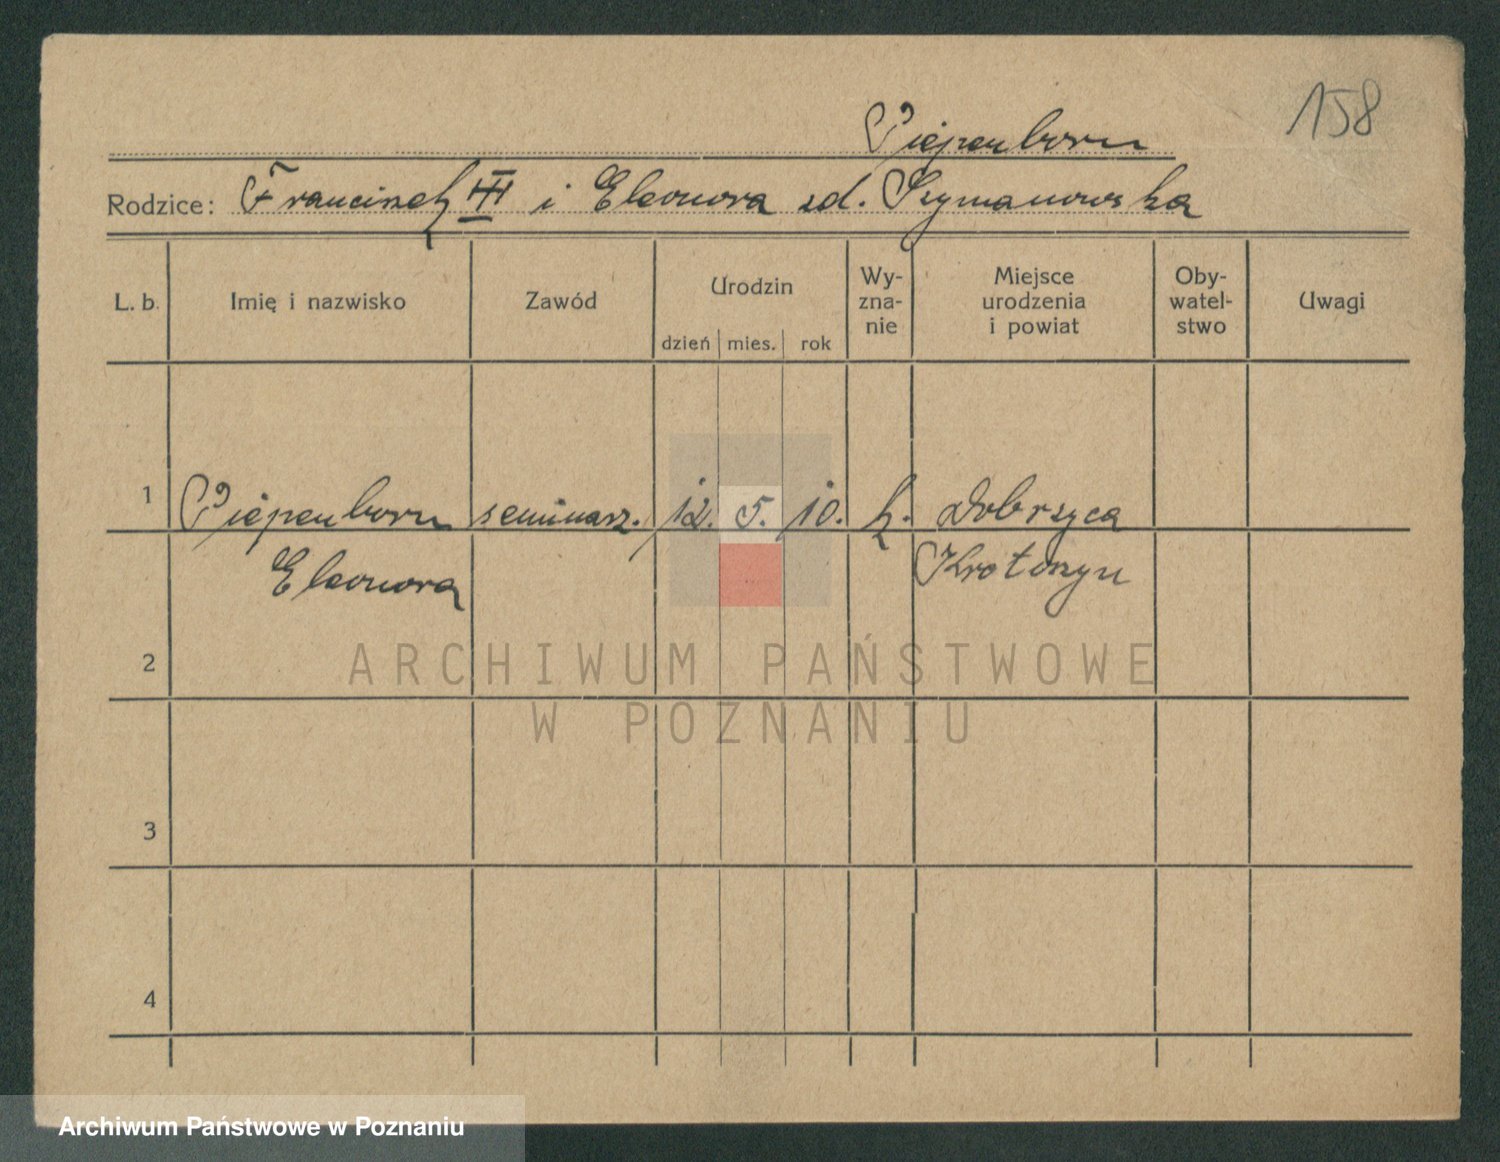 158
Piepenborn
Rodzice: Franciszek III i Eleonora zd. Szymanowska
L. b. Imię i nazwisko Zawód Urodzin dzień mies. rok Wy-zna-nie Miejsce urodzenia i powiat Oby-watel-stwo Uwagi
1 Piepenborn seminarz. 12. 5. 10. k. Dobrzyca
Eleonora Krotoszyn
2
3
4
ARCHIWUM PAŃSTWOWE
W POZNANIU
Archiwum Państwowe w Poznaniu